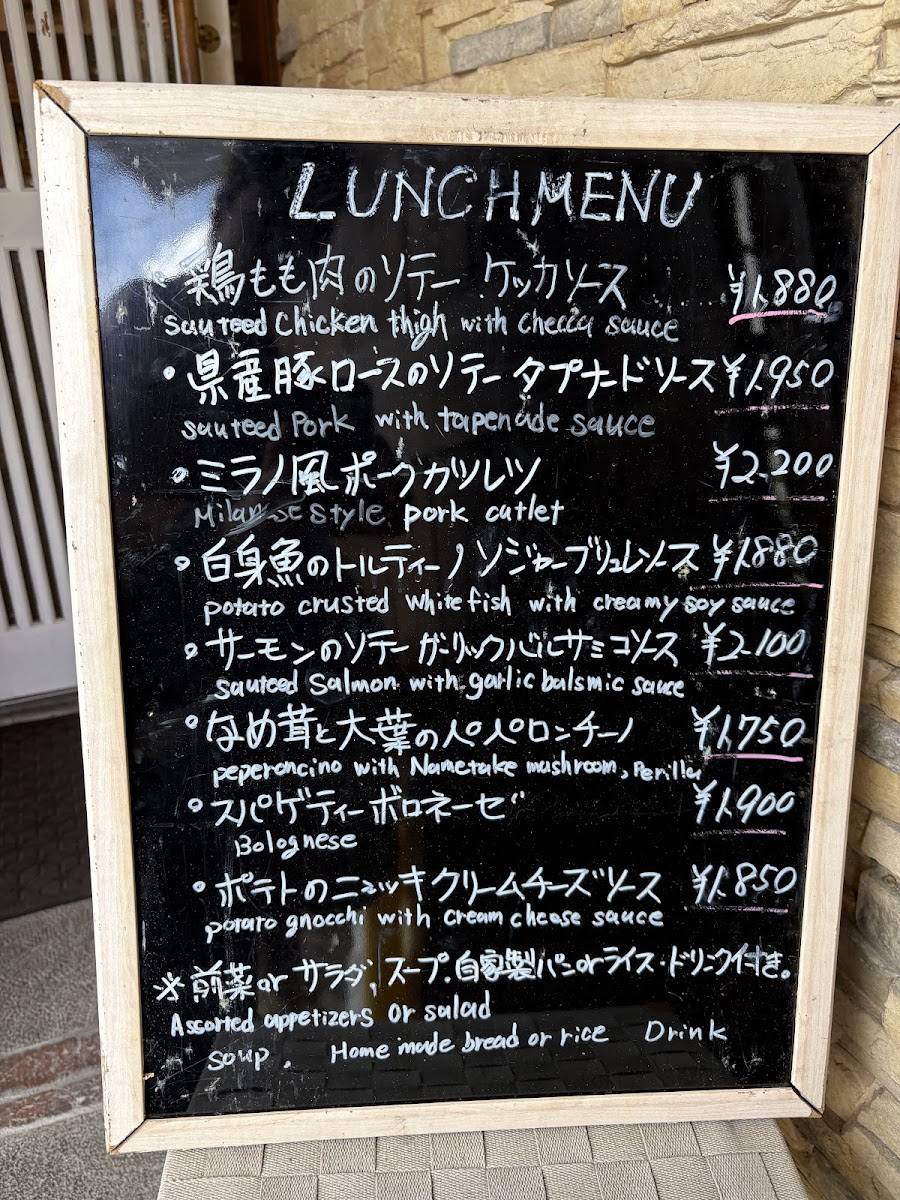 LUNCH MENU
・鶏もも肉のソテー ケッカソース ¥1,880
sauteed chicken thigh with checca sauce
・県産豚ロースのソテー タプナードソース ¥1,950
sauteed Pork with tapenade sauce
・ミラノ風ポークカツレツ ¥2,200
Milanese style pork cutlet
・白身魚のトルティーノ ソジャーブリュレソース ¥1,880
potato crusted White fish with creamy soy sauce
・サーモンのソテー ガーリックバルサミコソース ¥2,100
sauteed Salmon with garlic balsmic sauce
・なめ茸と大葉のペペロンチーノ ¥1,750
peperoncino with Nametake mushroom, Perilla
・スパゲティーボロネーゼ ¥1,900
Bolognese
・ポテトのニョッキクリームチーズソース ¥1,850
potato gnocchi with cream cheese sauce
※前菜orサラダ,スープ.自家製パンorライス・ドリンク付き。
Assorted appetizers or salad
soup. Home made bread or rice Drink